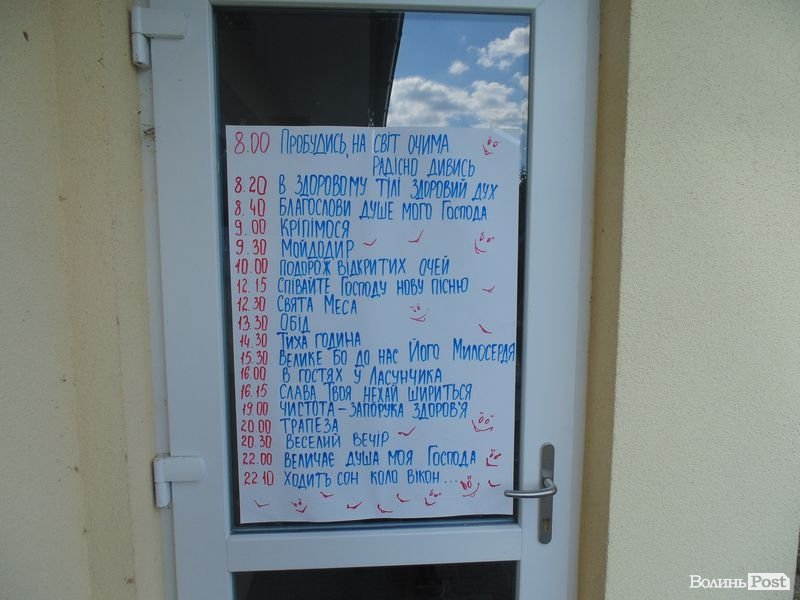 8.00 Пробудись, на світ очима
радісно дивись
8.20 В здоровому тілі здоровий дух
8.40 Благослови душе мого Господа
9.00 Кріпімося
9.30 Мойдодир
10.00 Подорож відкритих очей
12.15 Співайте Господу нову пісню
12.30 Свята Меса
13.30 Обід
14.30 Тиха година
15.30 Велике бо до нас Його Милосердя
16.00 В гостях у Ласунчика
16.15 Слава Твоя нехай шириться
19.00 Чистота – запорука здоров'я
20.00 Трапеза
20.30 Веселий вечір
22.00 Величає душа моя Господа
22.10 Ходить сон коло вікон...
ВолиньPost